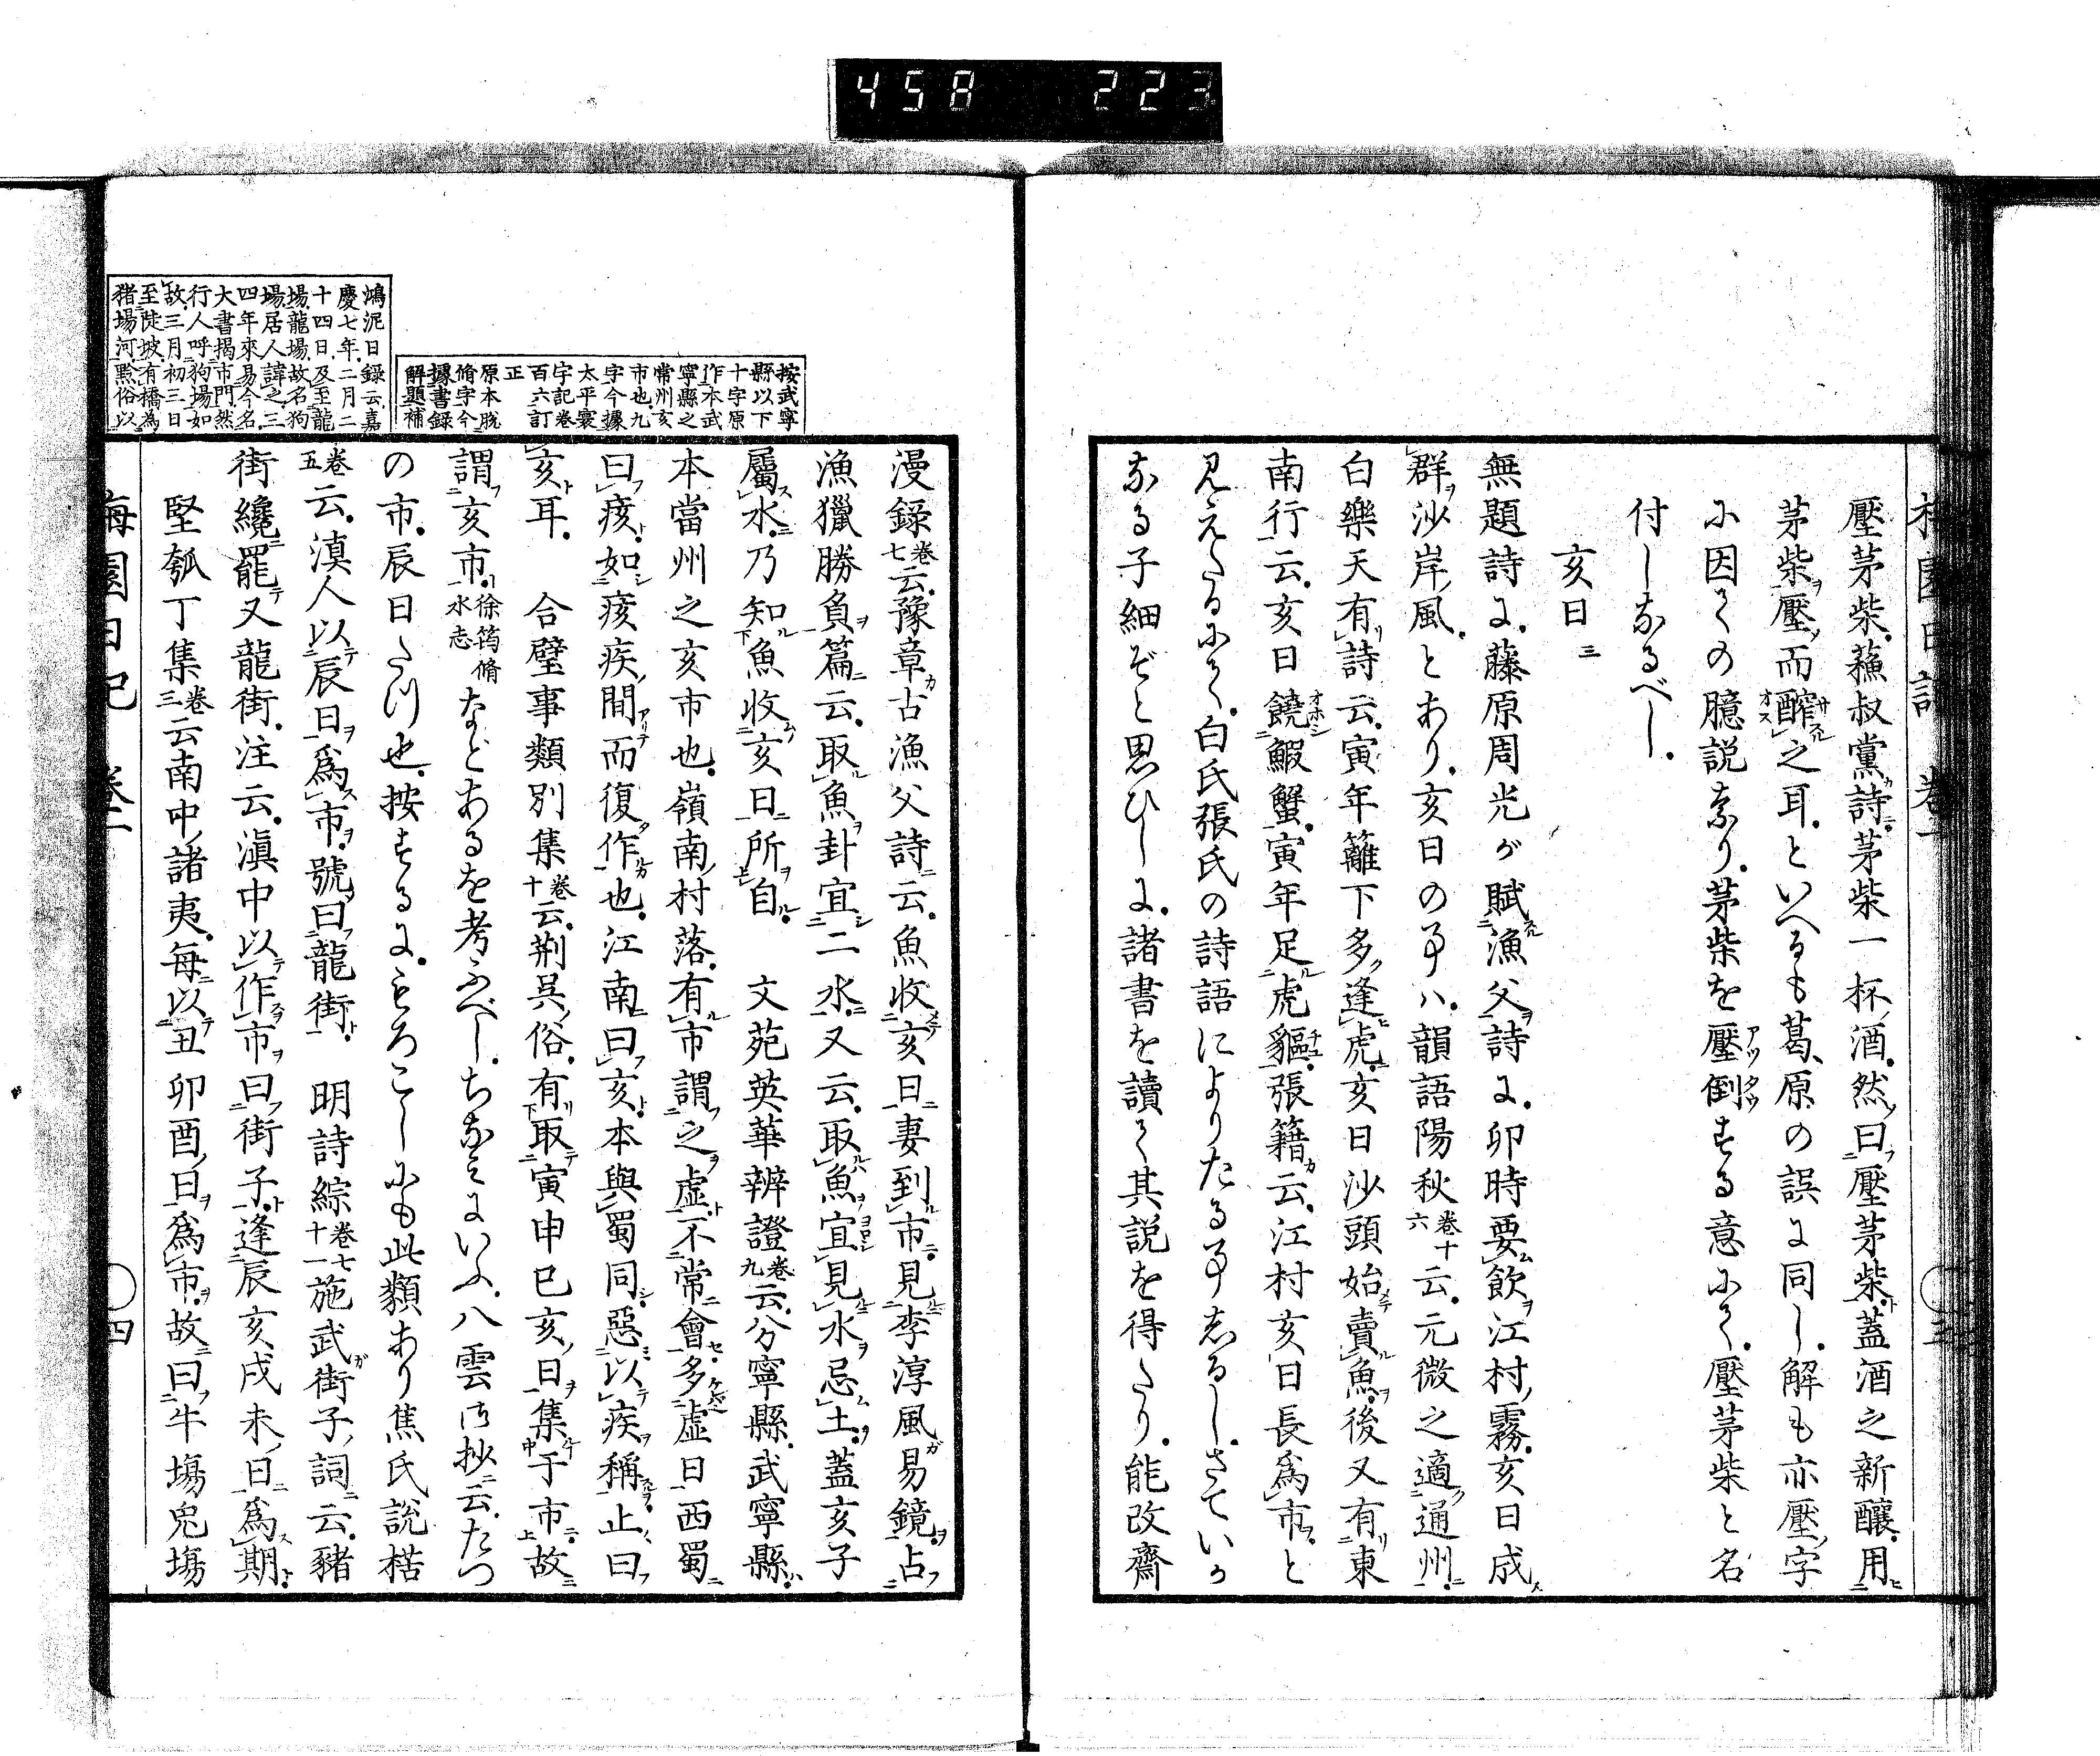 458 223
壓茅柴。蘓叔黨詩。茅柴一杯酒。然曰壓茅柴。蓋酒之新釀。用
茅柴壓而醡之耳。といへるも葛原の誤に同し。解も亦壓字
に因ての臆説なり。茅柴を壓倒する意にて。壓茅柴と名
付しなるべし。
亥日 三
無題詩に。藤原周光が賦漁父詩に。卯時要飲江村霧。亥日成
群沙岸風。とあり。亥日の事ハ。韻語陽秋卷十六云。元微之適通州。
白樂天有詩云。寅年籬下多逢虎。亥日沙頭始賣魚。後又有東
南行云。亥日饒鰕蟹。寅年足虎貙。張籍云。江村亥日長爲市。と
見えたるにて。白氏張氏の詩語によりたる事志るし。さていか
なる子細ぞと思ひしに。諸書を讀て其説を得たり。能改齋
漫録卷七云。豫章古漁父詩云。魚收亥日妻到市。見李淳風易鏡。占
漁獵勝負篇云。取魚卦宜二水。又云。取魚宜見水忌土。蓋亥子
屬水。乃知魚收亥日所自。 文苑英華辨證卷九云。分寧縣。武寧縣。
本當州之亥市也。嶺南村落。有市謂之虛。不常會多虛日西蜀
曰痎。如痎疾間而復作也。江南曰亥。本與蜀同。惡以疾稱。止曰
亥耳。 合璧事類別集卷十云。荆呉俗。有取寅申巳亥日集于市。故
謂亥市。徐筠脩水志 などあるを考ふべし。ちなみにいふ。八雲御抄云。たつ
の市。辰日たつ也。按するに。もろこしにも此類あり焦氏説楛
卷五云。滇人以辰日爲市。號曰龍街。 明詩綜卷七十一施武街子詞云。豬
街纔罷又龍街。注云。滇中以作市曰街子。逢辰亥戌未日爲期。
堅瓠丁集卷三云南中諸夷。每以丑卯酉日爲市。故曰牛塲兔塲
按武寧
縣以下
十字原
作本武
寧縣之
常州亥
市也九
字今據
太平寰
宇記卷
百六訂
正
原本脱
脩字今
據書録
解題補
鴻泥日録云嘉
慶七年。二月二
十四日。及至龍
塲。龍塲。故名狗
塲。居人諱之。三
四年來。易今名。
大書揭市門。然
行人呼狗塲如
故。三月初三日
至陡坡。有橋爲
猪塲河。黔俗以
梅園日記 卷二 〇四